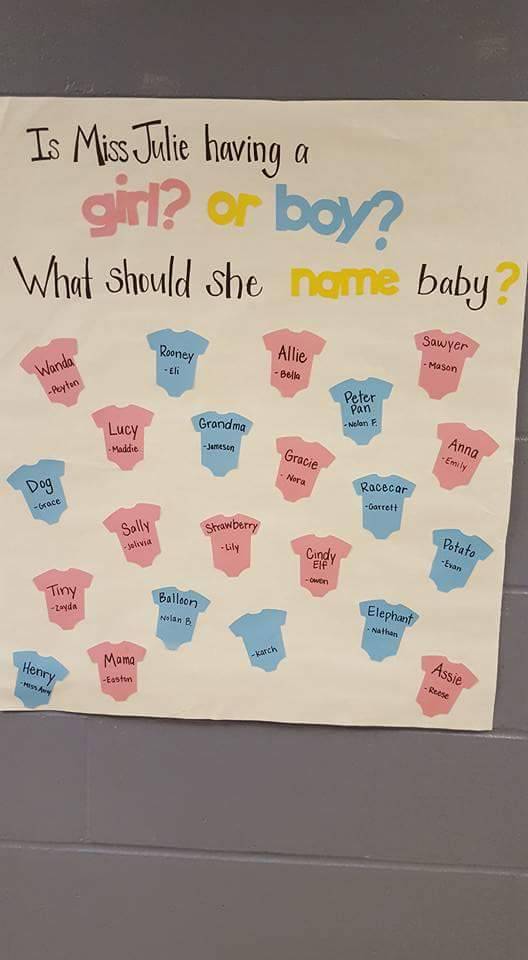 Is Miss Julie having a
girl? or boy?
What should she name baby?
Wanda
-Peyton
Rooney
- Eli
Allie
- Bella
Sawyer
- Mason
Peter
Pan
- Nolan F.
Lucy
-Maddie
Grandma
-Jameson
Gracie
- Nora
Anna
- Emily
Dog
-Grace
Racecar
-Garrett
Sally
-Jolivia
Strawberry
-Lily
Cindy
Elf
- Owen
Potato
- Evan
Tiny
- Zayda
Balloon
Nolan B
-Karch
Elephant
- Nathan
Henry
-Miss Amy
Mama
-Easton
Assie
- Reese